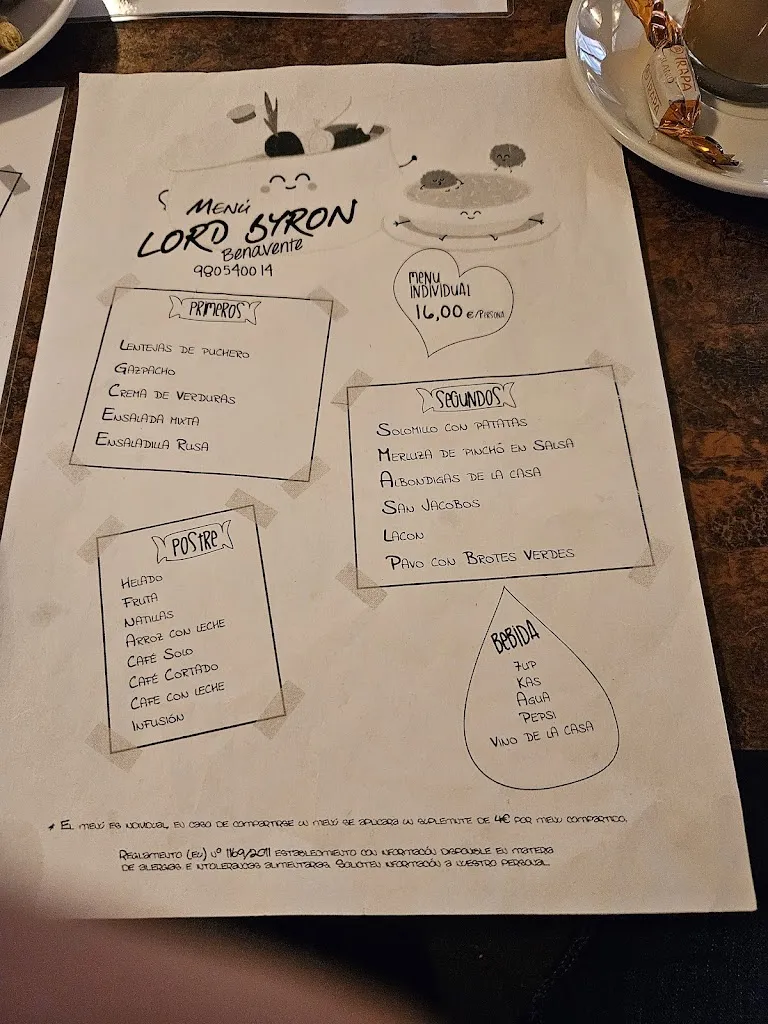 Menú
LORD BYRON
Benavente
980540014
MENU
INDIVIDUAL
16,00 €/PERSONA
PRIMEROS
LENTEJAS DE PUCHERO
GAZPACHO
CREMA DE VERDURAS
ENSALADA MIXTA
ENSALADILLA RUSA
SEGUNDOS
SOLOMILLO CON PATATAS
MERLUZA DE PINCHO EN SALSA
ALBONDIGAS DE LA CASA
SAN JACOBOS
LACON
PAVO CON BROTES VERDES
POSTRE
HELADO
FRUTA
NATILLAS
ARROZ CON LECHE
CAFÉ SOLO
CAFÉ CORTADO
CAFE CON LECHE
INFUSIÓN
BEBIDA
7UP
KAS
AGUA
PEPSI
VINO DE LA CASA
* EL MENÚ ES INDIVIDUAL, EN CASO DE COMPARTIRSE UN MENÚ SE APLICARA UN SUPLEMENTE DE 4€ POR MENU COMPARTIDO.
REGLAMENTO (EU) Nº 1169/2011 ESTABLECIMIENTO CON INFORMACIÓN DISPONIBLE EN MATERIA
DE ALERGIAS E INTOLERANCIAS ALIMENTARIAS. SOLICITEN INFORMACIÓN A NUESTRO PERSONAL
TRAPA